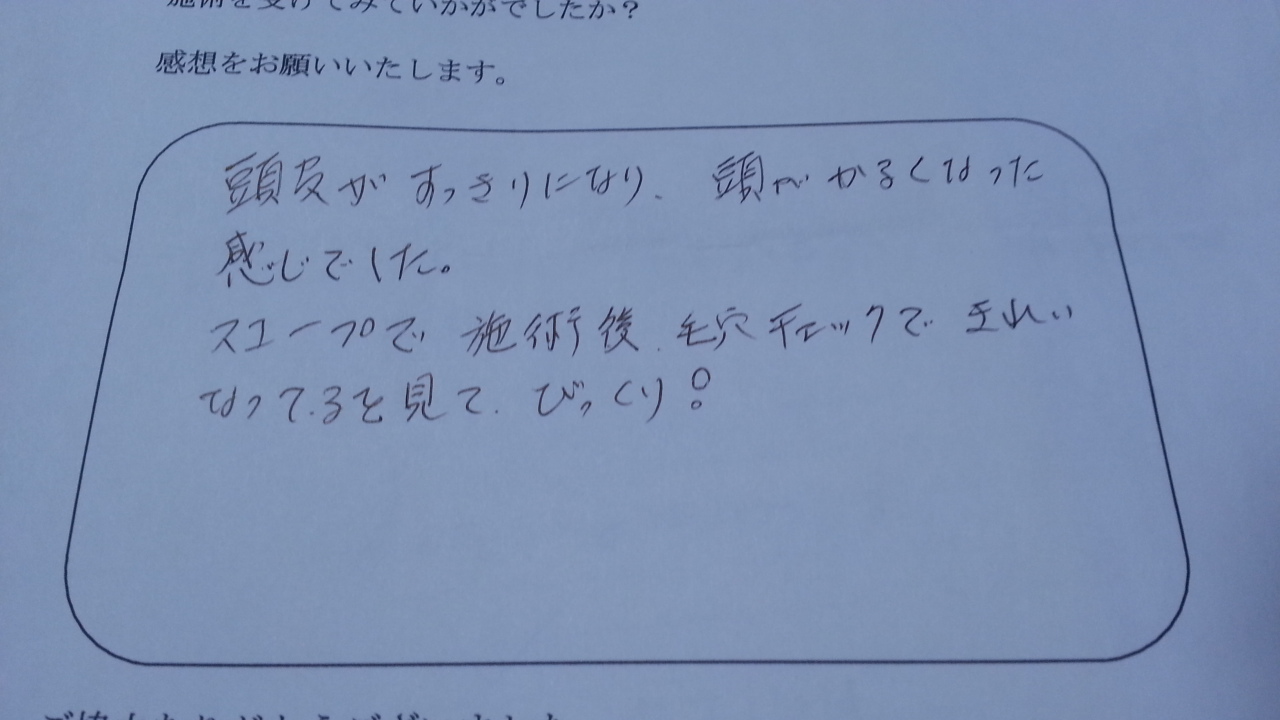 施術を受けてみていかがでしたか?
感想をお願いいたします。
頭皮がすっきりになり、頭がかるくなった
感じでした。
スコープで施術後、毛穴チェックできれい
なってるを見て、びっくり!
ご協力ありがとうございました